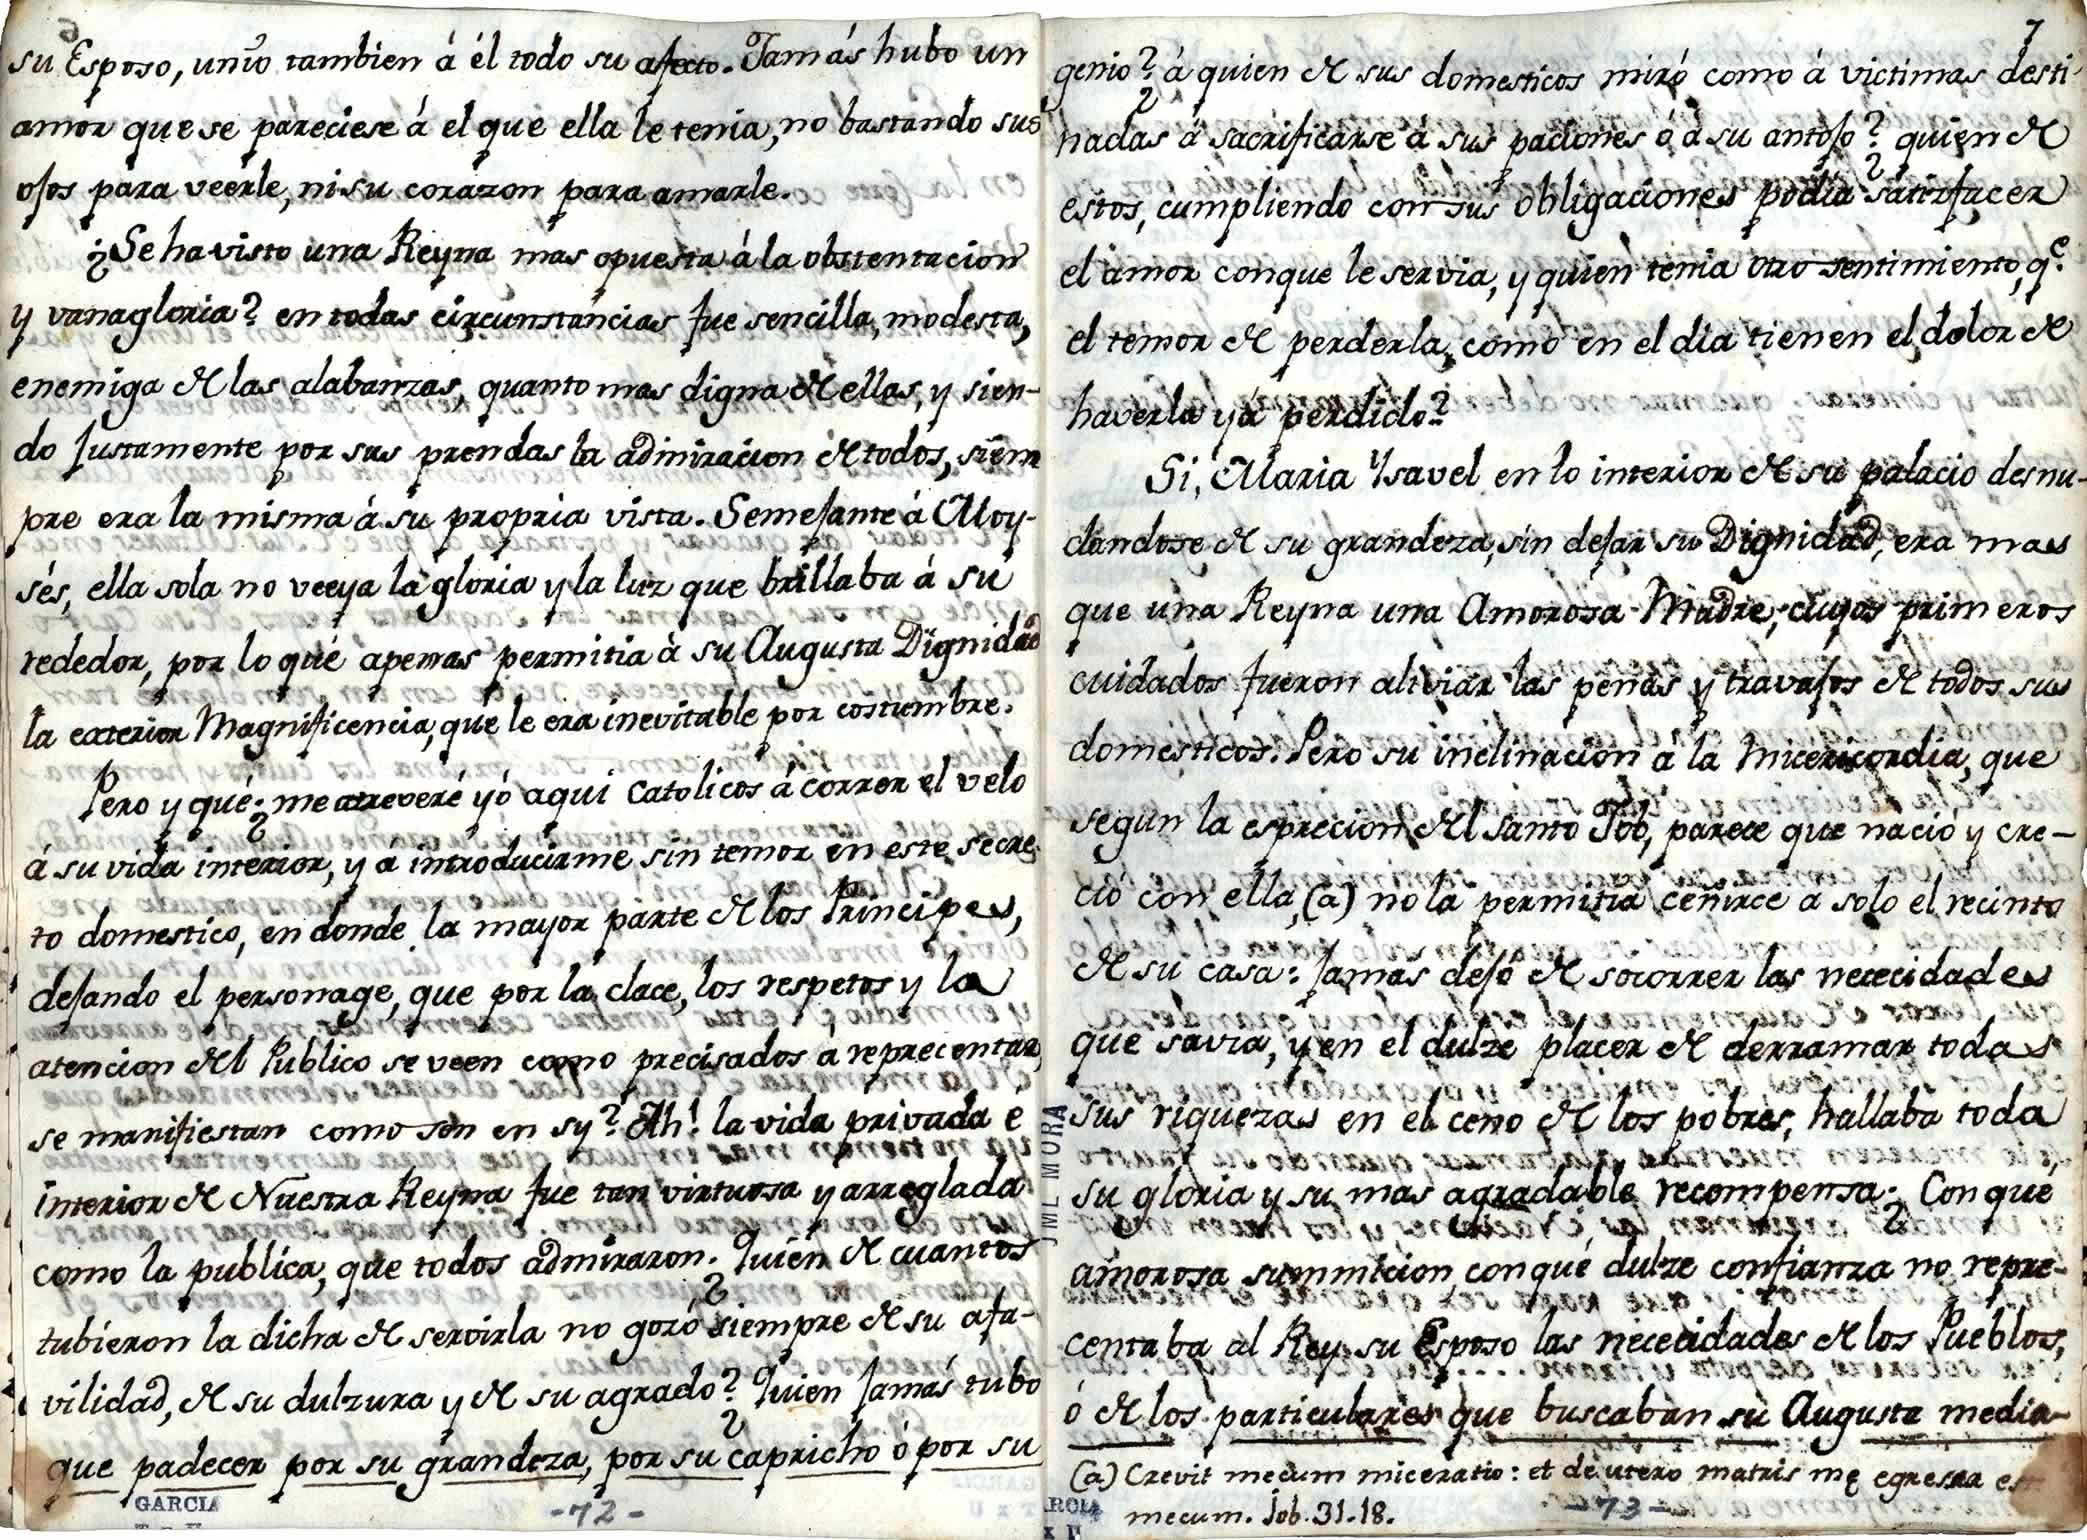 su Esposo, unió tambien á él todo su afecto. Jamás hubo un
amor que se pareciese á el que ella le tenia, no bastando sus
ojos para veerle, ni su corazon para amarle.
¿Se ha visto una Reyna mas opuesta á la obstentacion
y vanagloria? en todas circunstancias fue sencilla, modesta,
enemiga de las alabanzas, quanto mas digna de ellas, y sien-
do justamente por sus prendas la admiracion de todos, siem
pre era la misma á su propria vista. Semejante á Moy-
sés, ella sola no veeya la gloria y la luz que brillaba á su
rededor, por lo qué apenas permitia à su Augusta Dignidad
la exterior Magnificencia, que le era inevitable por costumbre.
Pero y qué: ¿me atreveré yó aqui Catolicos á correr el velo
á su vida interior, y á introducirme sin temor en este secre
to domestico, en donde la mayor parte de los Principes,
dejando el personage, que por la clace, los respetos y la
atencion del Publico se veen como precisados à reprecentar,
se manifiestan como son en sy? Ah! la vida privada é
interior de Nuestra Reyna fue tan virtuosa y arreglada
como la publica, que todos admiraron. ¿Quién de cuantos
tubieron la dicha de servirla no gozó siempre de su afa-
vilidad, de su dulzura y de su agrado? ¿Quien jamás tubo
que padecer por su grandeza, por su capricho ó por su
GARCIA
-72-
7
genio? ¿á quien de sus domesticos miró como á victimas desti
nadas á sacrificarse à sus paciones ó à su antojo? ¿quien de
estos, cumpliendo con sus obligaciones podia satizfacer
el amor conque le servia, y quien tenia otro sentimiento, qe.
el temor de perderla, como en el dia tienen el dolor de
haverla yá perdido?
Si, Maria Ysavel en lo interior de su palacio desnu-
dandose de su grandeza, sin dejar su Dignidad, era mas
que una Reyna una Amorosa Madre, cuyos primeros
cuidados fueron aliviar las penas y travajos de todos sus
domesticos. Pero su inclinacion a la Micericordia, que
segun la esprecion del Santo Job, parece que nació y cre-
ció con ella, (a) no la permitia ceñirce á solo el recinto
de su casa: jamás dejó de socorrer las nececidades
que savia, y en el dulze placer de derramar todas
sus riquezas en el ceno de los pobres, hallaba toda
su gloria y su mas agradable recompensa. ¿Con qué
amorosa summicion, con qué dulze confianza no repre-
centaba al Rey su Esposo las nececidades de los Pueblos,
ó de los particulares que buscaban su Augusta media-
(a) Crevit mecum miceratio: et de utero matris me egressa est
mecum. Job. 31.18.
-73-
JML MORA